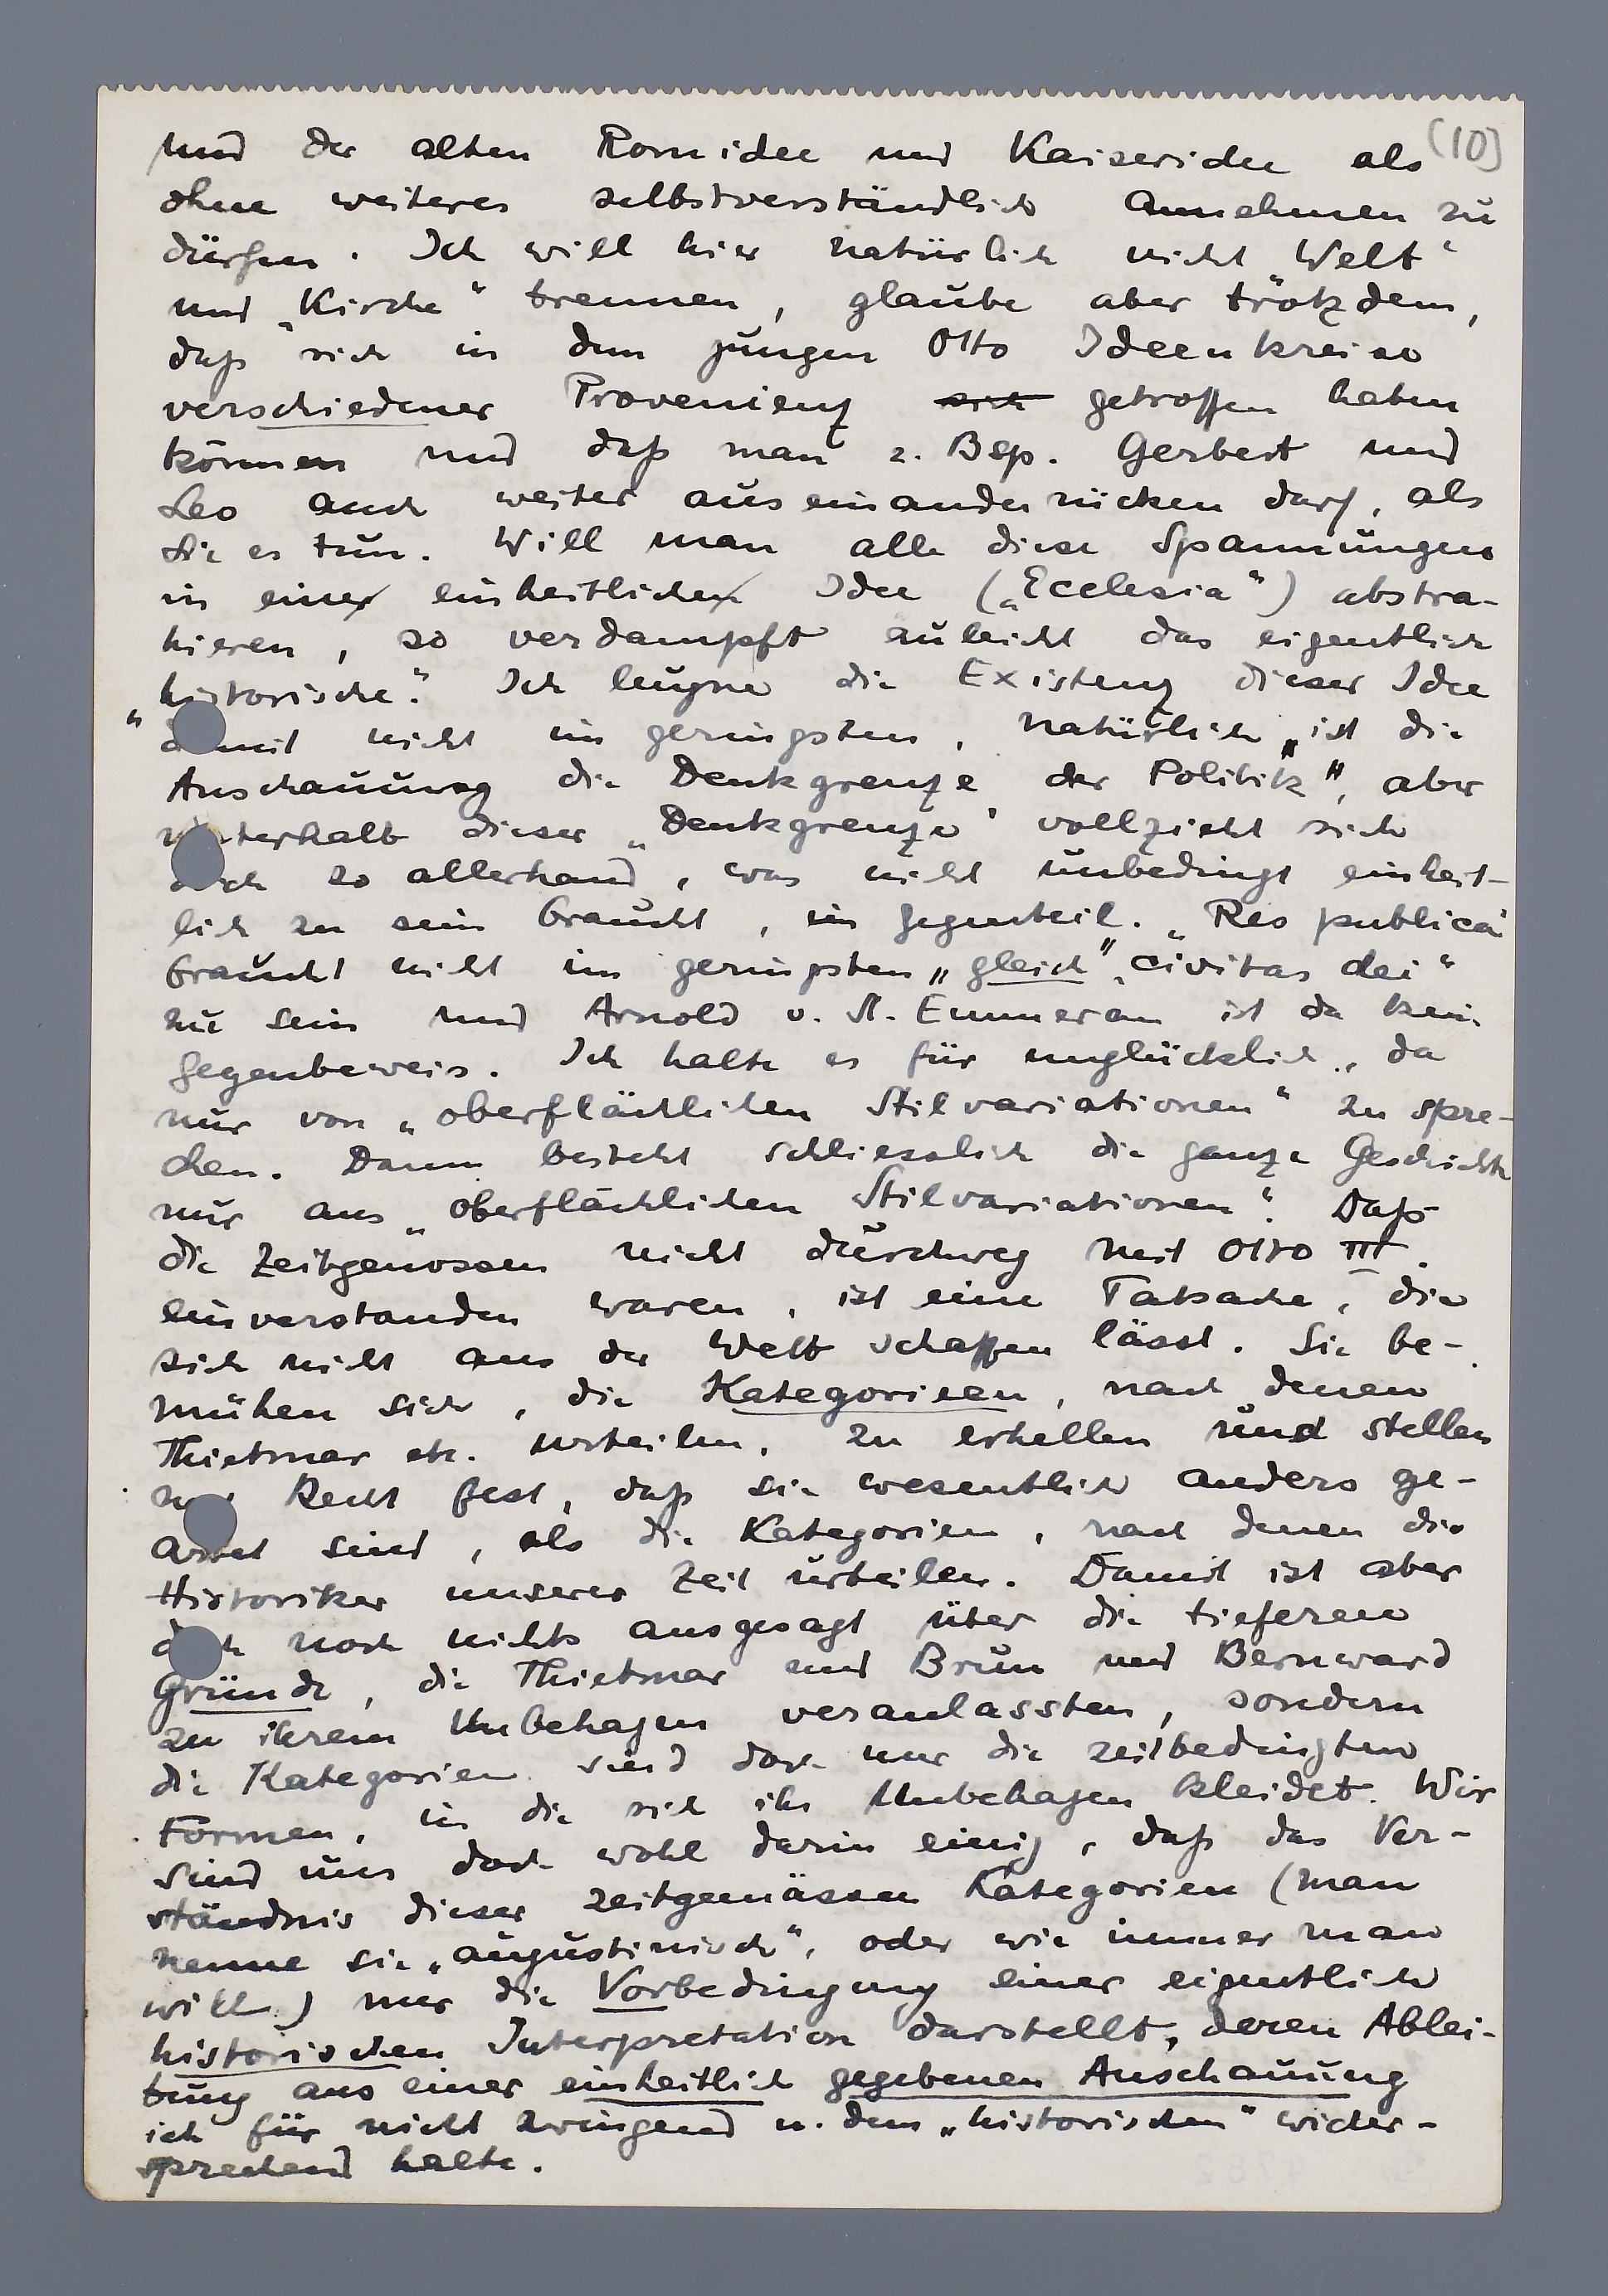 (10)
und der alten Romidee und Kaiseridee als
ohne weiteres selbstverständlich annehmen zu
dürfen. Ich will hier natürlich nicht „Welt“
und „Kirche“ trennen, glaube aber trotzdem,
daß sich in dem jungen Otto Ideenkreise
verschiedener Provenienz sich getroffen haben
können und daß man z. Bsp. Gerbert und
Leo auch weiter auseinanderrücken darf, als
Sie es tun. Will man alle diese Spannungen
in eine einheitliche Idee („Ecclesia“) abstra-
hieren, so verdampft zuleicht das eigentlich
„historische“. Ich leugne die Existenz dieser Idee
damit nicht im geringsten, natürlich „ist die
Anschauung die Denkgrenze der Politik“, aber
unterhalb dieser „Denkgrenze“ vollzieht sich
doch so allerhand, was nicht unbedingt einheit-
lich zu sein braucht, im Gegenteil. „Res publica“
braucht nicht im geringsten „gleich“ „civitas dei“
zu sein und Arnold v. St. Emmeram ist da kein
Gegenbeweis. Ich halte es für unglücklich, da
nur von „oberflächlichen Stilvariationen“ zu spre-
chen. Dann besteht schliesslich die ganze Geschichte
nur aus „oberflächlichen Stilvariationen“. Daß
die Zeitgenossen nicht durchweg mit Otto III.
einverstanden waren, ist eine Tatsache, die
sich nicht aus der Welt schaffen lässt. Sie be-
mühen sich, die Kategorieen, nach denen
Thietmar etc. urteilen, zu erhellen und stellen
mit Recht fest, daß sie wesentlich anders ge-
artet sind, als die Kategorien, nach denen die
Historiker unserer Zeit urteilen. Damit ist aber
doch noch nichts ausgesagt über die tieferen
Gründe, die Thietmar und Brun und Bernward
zu ihrem Unbehagen veranlassten, sondern
die Kategorien sind doch nur die zeitbedingten
Formen, in die sich ihr Unbehagen kleidet. Wir
sind uns doch wohl darin einig, daß das Ver-
ständnis dieser zeitgemässen Kategorien (man
nenne sie „augustinisch“, oder wie immer man
will) nur die Vorbedingung einer eigentlich
historischen Interpretation darstellt, deren Ablei-
tung aus einer einheitlich gegebenen Anschauung
ich für nicht zwingend u. dem „historischen“ wider-
sprechend halte.